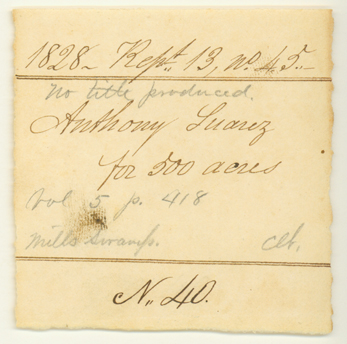 1828 - Rept. 13, no. 45.-
No title produced.
Anthony Suarez
for 500 acres
Vol 5 p. 418
Mills Swamp. Clk.
N.. 40.